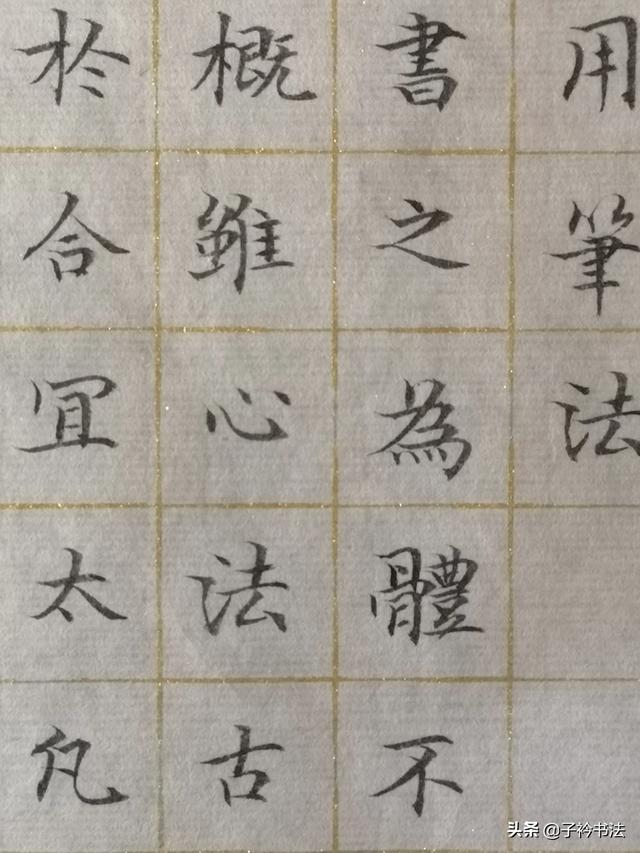 用筆法
書之為體不
概雖心法古
於合宜太凡
头条 @子衿书法